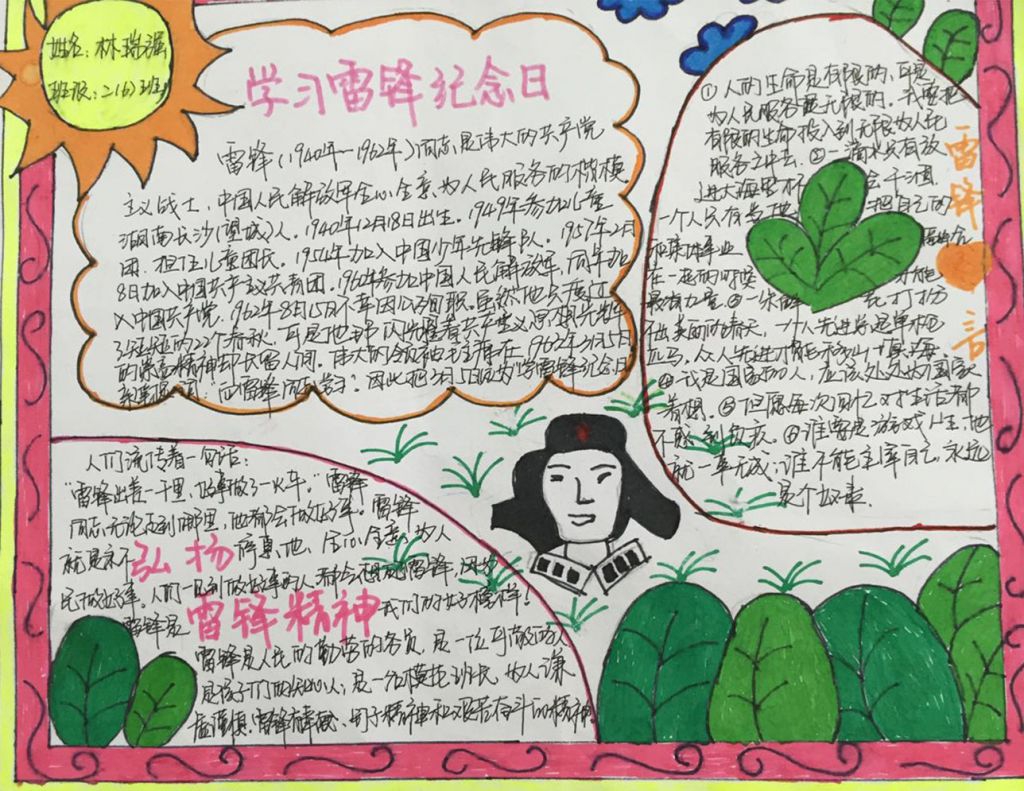 姓名：林瑞强
班级：二(6)班
学习雷锋纪念日
雷锋（1940年—1962年）同志是伟大的共产党
主义战士，中国人民解放军全心全意为人民服务的楷模
湖南长沙(望城)人。1940年12月18日出生。1949年参加儿童
团，担任儿童团长。1954年加入中国少年先锋队。1957年2月
8日加入中国共产主义共青团。1960年参加中国人民解放军，同年加
入中国共产党。1962年8月15日不幸因公殉职。虽然他只度过
的22个春秋，可是他那闪耀着共产主义思想光辉
的崇高精神却长留人间。伟大的领袖毛主席在1963年3月5日
"向雷锋同志学习"。因此把3月5日定为"学雷锋纪念日
①人的生命是有限的，可是
为人民服务是无限的。我要把
有限的生命投入到无限为人民
服务之中去。②一滴水只有放
进大海里
一个人只有当他 把自己的
和集体事业
在一起的时候 才能
最有力量。③一朵鲜 花打扮
不出美丽的春天，一个人先进总是单枪
匹马，众人先进才能移山填海
④我是国家的人，应该处处为国家
着想。⑤但愿每次回忆对生活都
不感到疚。⑥谁要是游戏人生，他
就一事无成；谁不能主宰自己，永远
是个奴隶。
雷锋
言
人们流传着一句话：
"雷锋出差一千里，好事做了一火车。"雷锋
同志无论走到哪里，他都会做好事。雷锋
就是永不 他，全心全意为人
民做好事。人们一见到做好事的人都会想起雷锋，因为
雷锋是 我们的好榜样！
弘扬
雷锋精神
雷锋是人民的勤劳的务员，是一位可敬的
是孩子们的知心人，是一名模范班长，为人谦